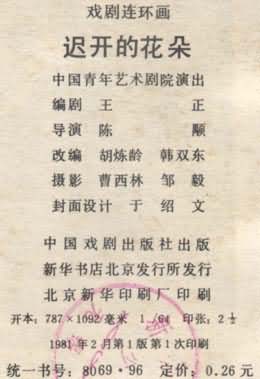 戏剧连环画
迟开的花朵
中国青年艺术剧院演出
编剧 王 正
导演 陈 颙
改编 胡炼龄 韩双东
摄影 曹西林 邹毅
封面设计 于绍文
中国戏剧出版社出版
新华书店北京发行所发行
北京新华印刷厂印刷
开本：787×1092/毫米 1/64 印张：2½
1981年2月第1版第1次印刷
统一书号：8069·96 定价：0.26元